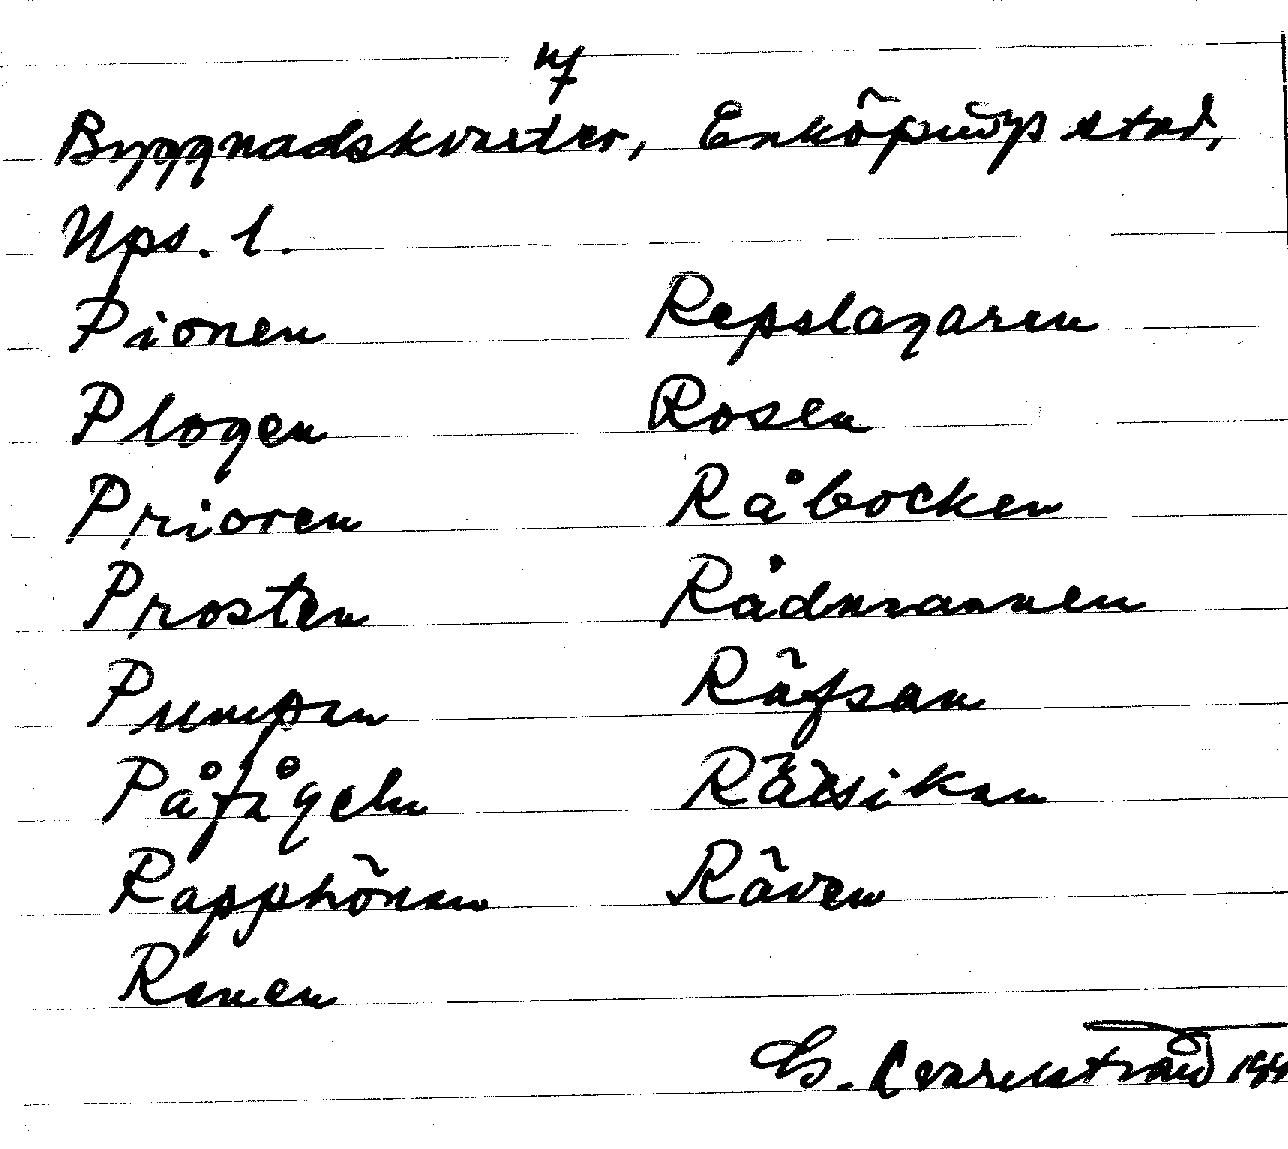 Byggnadskvarter, Enköpings stad,
Ups. l.
Pionen
Plogen
Prioren
Prosten
Pumpen
Påfågeln
Rapphönan
Ranen
Repslagaren
Rosen
Råbocken
Rådmannen
Räfsan
Rättikan
Räven